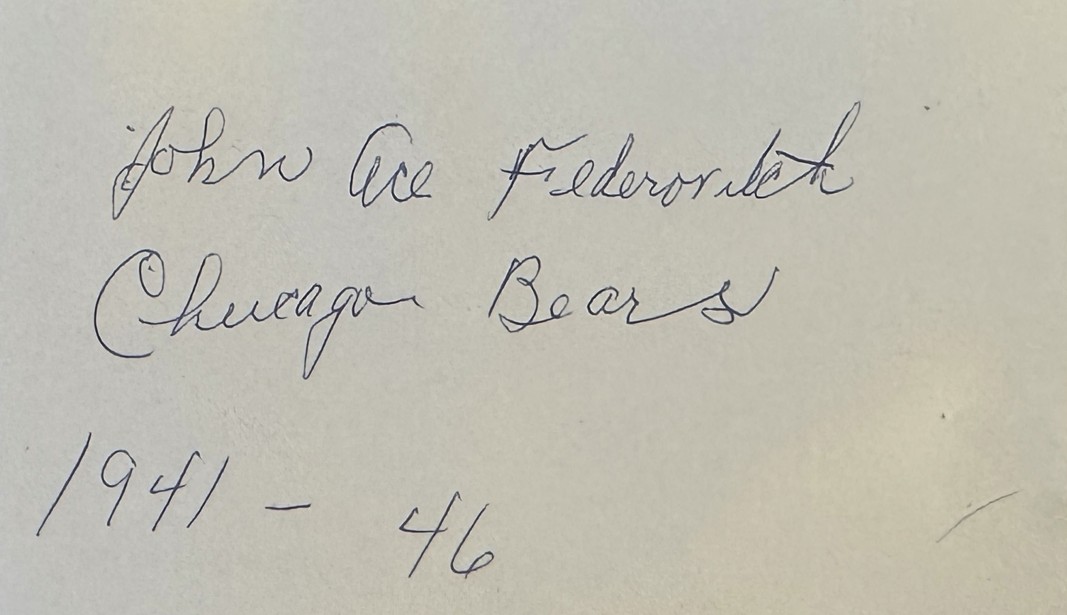 John Ace Federovitch
Chicago Bears
1941 - 46